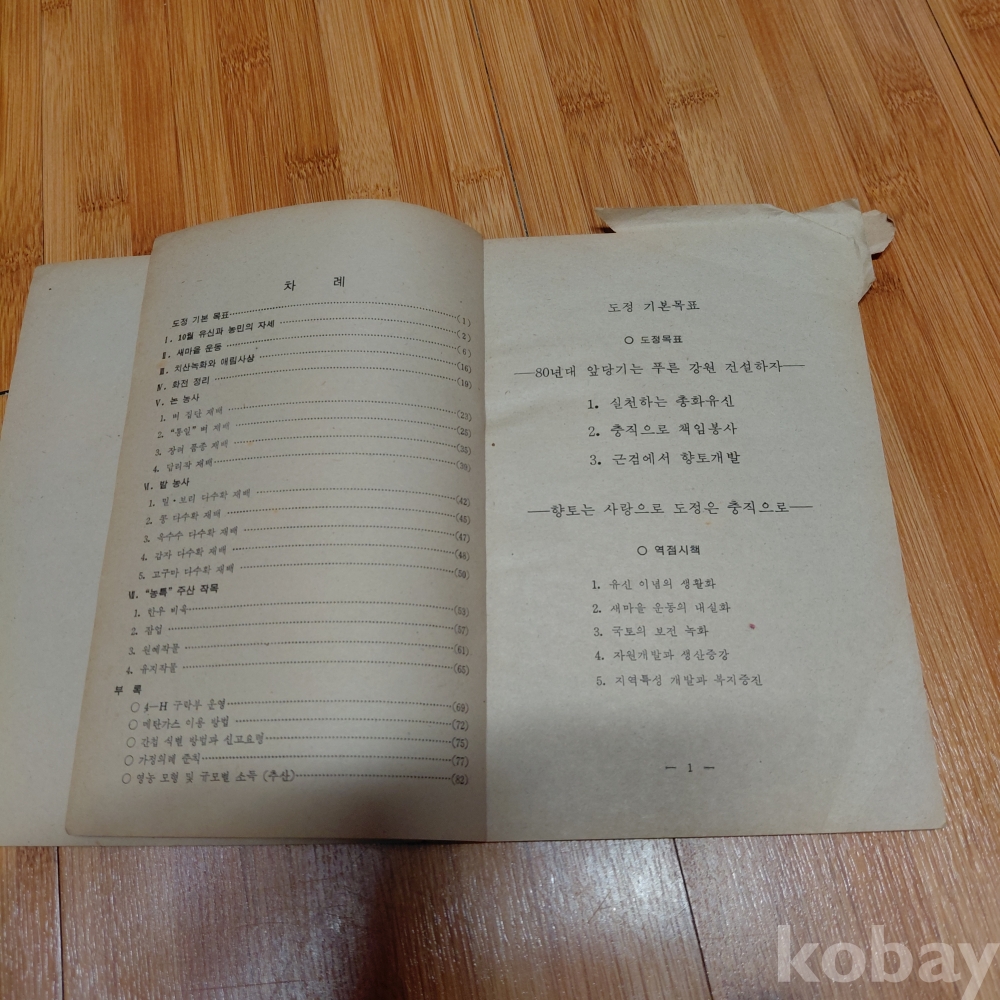 차 례
도정 기본 목표 (1)
Ⅰ. 10월 유신과 농민의 자세 (2)
Ⅱ. 새마을 운동 (6)
Ⅲ. 치산녹화와 애림사상 (16)
Ⅳ. 화전 정리 (19)
Ⅴ. 논 농사
1. 벼 집단 재배 (23)
2. "통일" 벼 재배 (25)
3. 장려 품종 재배 (35)
4. 답리작 재배 (39)
Ⅵ. 밭 농사
1. 밀·보리 다수확 재배 (42)
2. 콩 다수확 재배 (45)
3. 옥수수 다수확 재배 (47)
4. 감자 다수확 재배 (48)
5. 고구마 다수확 재배 (50)
Ⅶ. "농특" 주산 작목
1. 한우 비육 (53)
2. 잠업 (57)
3. 원예작물 (61)
4. 유지작물 (65)
부 록
○ 4—H 구락부 운영 (69)
○ 메탄가스 이용 방법 (72)
○ 간첩 식별 방법과 신고요령 (75)
○ 가정의례 준칙 (77)
○ 영농 모형 및 규모별 소득 (추산) (82)
도정 기본목표
○ 도정목표
—80년대 앞당기는 푸른 강원 건설하자—
1. 실천하는 총화유신
2. 충직으로 책임봉사
3. 근검에서 향토개발
—향토는 사랑으로 도정은 충직으로—
○ 역점시책
1. 유신 이념의 생활화
2. 새마을 운동의 내실화
3. 국토의 보전 녹화
4. 자원개발과 생산증강
5. 지역특성 개발과 복지증진
— 1 —
kobay